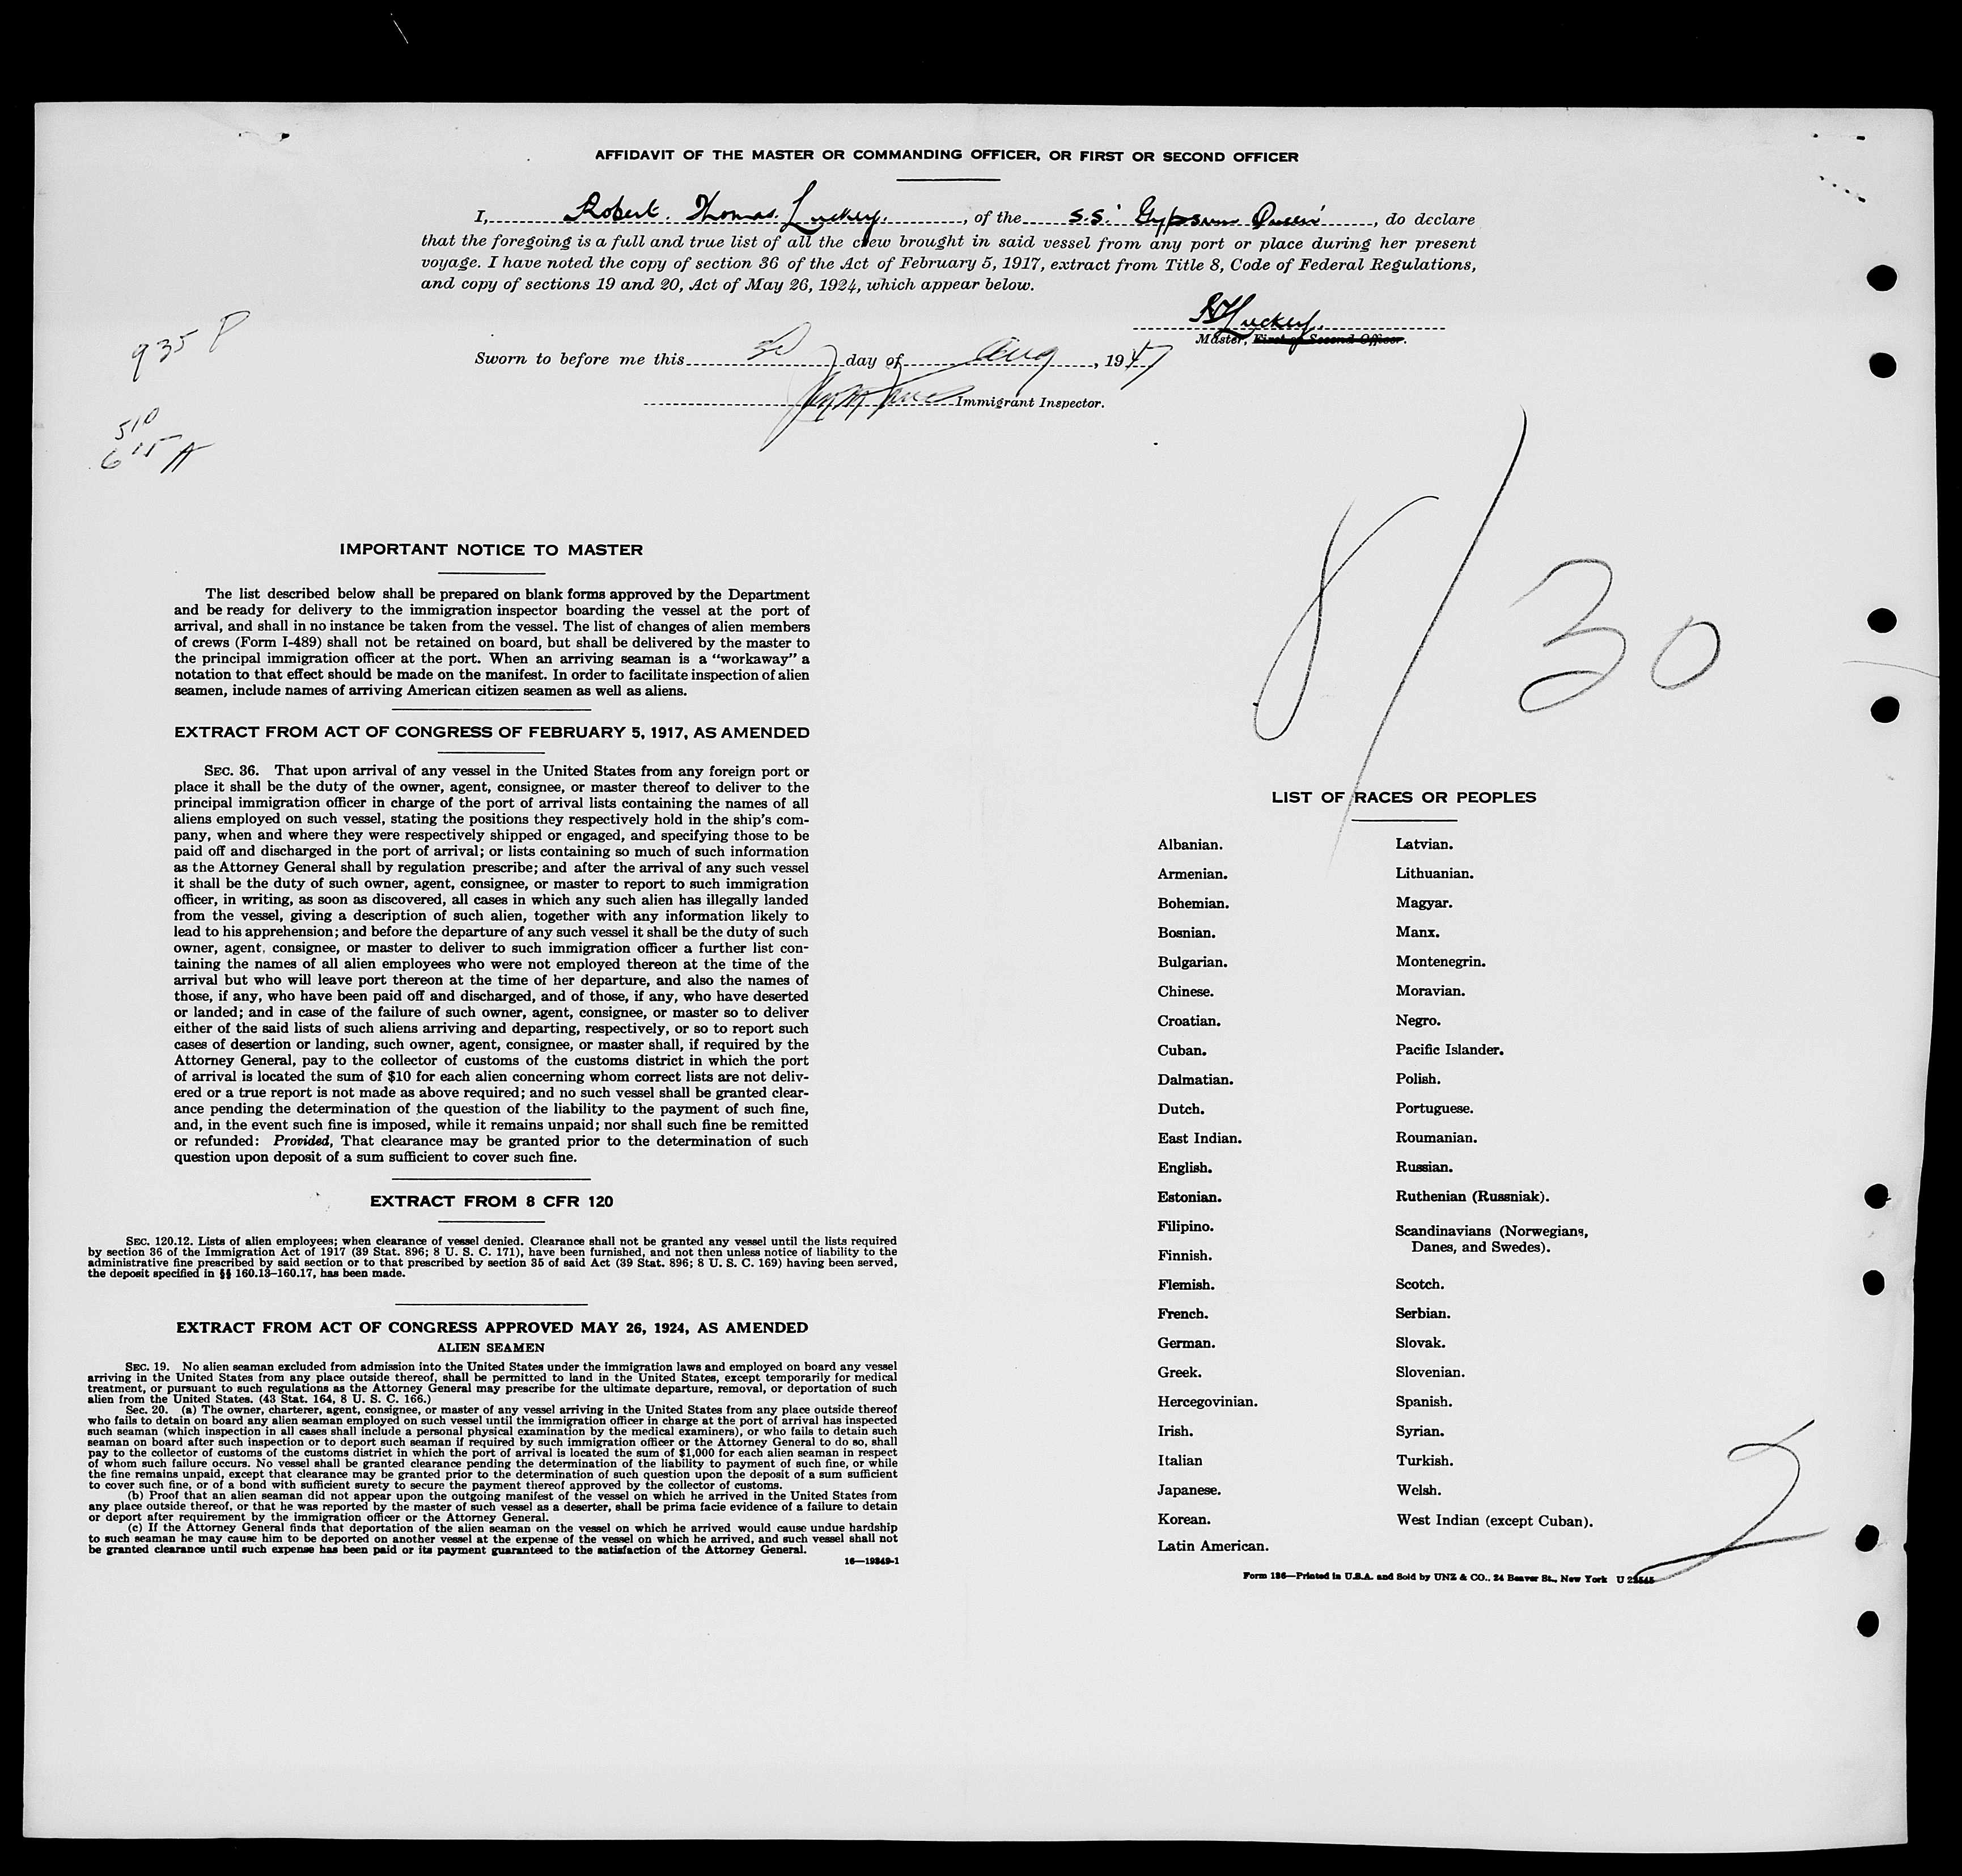 AFFIDAVIT OF THE MASTER OR COMMANDING OFFICER, OR FIRST OR SECOND OFFICER
I, Robert. Thomas. Luckey., of the S.S. Gypsum Queen, do declare
that the foregoing is a full and true list of all the crew brought in said vessel from any port or place during her present
voyage. I have noted the copy of section 36 of the Act of February 5, 1917, extract from Title 8, Code of Federal Regulations,
and copy of sections 19 and 20, Act of May 26, 1924, which appear below.
Luckey.
Master, First or Second Officer.
935 P
Sworn to before me this 30 day of Aug, 1947
Immigrant Inspector.
510
615 A
8/30
IMPORTANT NOTICE TO MASTER
The list described below shall be prepared on blank forms approved by the Department
and be ready for delivery to the immigration inspector boarding the vessel at the port of
arrival, and shall in no instance be taken from the vessel. The list of changes of alien members
of crews (Form I-489) shall not be retained on board, but shall be delivered by the master to
the principal immigration officer at the port. When an arriving seaman is a “workaway” a
notation to that effect should be made on the manifest. In order to facilitate inspection of alien
seamen, include names of arriving American citizen seamen as well as aliens.
EXTRACT FROM ACT OF CONGRESS OF FEBRUARY 5, 1917, AS AMENDED
SEC. 36. That upon arrival of any vessel in the United States from any foreign port or
place it shall be the duty of the owner, agent, consignee, or master thereof to deliver to the
principal immigration officer in charge of the port of arrival lists containing the names of all
aliens employed on such vessel, stating the positions they respectively hold in the ship's com-
pany, when and where they were respectively shipped or engaged, and specifying those to be
paid off and discharged in the port of arrival; or lists containing so much of such information
as the Attorney General shall by regulation prescribe; and after the arrival of any such vessel
it shall be the duty of such owner, agent, consignee, or master to report to such immigration
officer, in writing, as soon as discovered, all cases in which any such alien has illegally landed
from the vessel, giving a description of such alien, together with any information likely to
lead to his apprehension; and before the departure of any such vessel it shall be the duty of such
owner, agent, consignee, or master to deliver to such immigration officer a further list con-
taining the names of all alien employees who were not employed thereon at the time of the
arrival but who will leave port thereon at the time of her departure, and also the names of
those, if any, who have been paid off and discharged, and of those, if any, who have deserted
or landed; and in case of the failure of such owner, agent, consignee, or master so to deliver
either of the said lists of such aliens arriving and departing, respectively, or so to report such
cases of desertion or landing, such owner, agent, consignee, or master shall, if required by the
Attorney General, pay to the collector of customs of the customs district in which the port
of arrival is located the sum of $10 for each alien concerning whom correct lists are not deliv-
ered or a true report is not made as above required; and no such vessel shall be granted clear-
ance pending the determination of the question of the liability to the payment of such fine,
and, in the event such fine is imposed, while it remains unpaid; nor shall such fine be remitted
or refunded: Provided, That clearance may be granted prior to the determination of such
question upon deposit of a sum sufficient to cover such fine.
EXTRACT FROM 8 CFR 120
SEC. 120.12. Lists of alien employees; when clearance of vessel denied. Clearance shall not be granted any vessel until the lists required
by section 36 of the Immigration Act of 1917 (39 Stat. 896; 8 U. S. C. 171), have been furnished, and not then unless notice of liability to the
administrative fine prescribed by said section or to that prescribed by section 35 of said Act (39 Stat. 896; 8 U. S. C. 169) having been served,
the deposit specified in §§ 160.13–160.17, has been made.
EXTRACT FROM ACT OF CONGRESS APPROVED MAY 26, 1924, AS AMENDED
ALIEN SEAMEN
SEC. 19. No alien seaman excluded from admission into the United States under the immigration laws and employed on board any vessel
arriving in the United States from any place outside thereof, shall be permitted to land in the United States, except temporarily for medical
treatment, or pursuant to such regulations as the Attorney General may prescribe for the ultimate departure, removal, or deportation of such
alien from the United States. (43 Stat. 164, 8 U. S. C. 166.)
Sec. 20. (a) The owner, charterer, agent, consignee, or master of any vessel arriving in the United States from any place outside thereof
who fails to detain on board any alien seaman employed on such vessel until the immigration officer in charge at the port of arrival has inspected
such seaman (which inspection in all cases shall include a personal physical examination by the medical examiners), or who fails to detain such
seaman on board after such inspection or to deport such seaman if required by such immigration officer or the Attorney General to do so, shall
pay to the collector of customs of the customs district in which the port of arrival is located the sum of $1,000 for each alien seaman in respect
of whom such failure occurs. No vessel shall be granted clearance pending the determination of the liability to payment of such fine, or while
the fine remains unpaid, except that clearance may be granted prior to the determination of such question upon the deposit of a sum sufficient
to cover such fine, or of a bond with sufficient surety to secure the payment thereof approved by the collector of customs.
(b) Proof that an alien seaman did not appear upon the outgoing manifest of the vessel on which he arrived in the United States from
any place outside thereof, or that he was reported by the master of such vessel as a deserter, shall be prima facie evidence of a failure to detain
or deport after requirement by the immigration officer or the Attorney General.
(c) If the Attorney General finds that deportation of the alien seaman on the vessel on which he arrived would cause undue hardship
to such seaman he may cause him to be deported on another vessel at the expense of the vessel on which he arrived, and such vessel shall not
be granted clearance until such expense has been paid or its payment guaranteed to the satisfaction of the Attorney General.
16—19349-1
LIST OF RACES OR PEOPLES
Albanian.
Armenian.
Bohemian.
Bosnian.
Bulgarian.
Chinese.
Croatian.
Cuban.
Dalmatian.
Dutch.
East Indian.
English.
Estonian.
Filipino.
Finnish.
Flemish.
French.
German.
Greek.
Hercegovinian.
Irish.
Italian
Japanese.
Korean.
Latin American.
Latvian.
Lithuanian.
Magyar.
Manx.
Montenegrin.
Moravian.
Negro.
Pacific Islander.
Polish.
Portuguese.
Roumanian.
Russian.
Ruthenian (Russniak).
Scandinavians (Norwegians,
Danes, and Swedes).
Scotch.
Serbian.
Slovak.
Slovenian.
Spanish.
Syrian.
Turkish.
Welsh.
West Indian (except Cuban).
2
Form 136—Printed in U.S.A. and Sold by UNZ & CO., 24 Beaver St., New York U